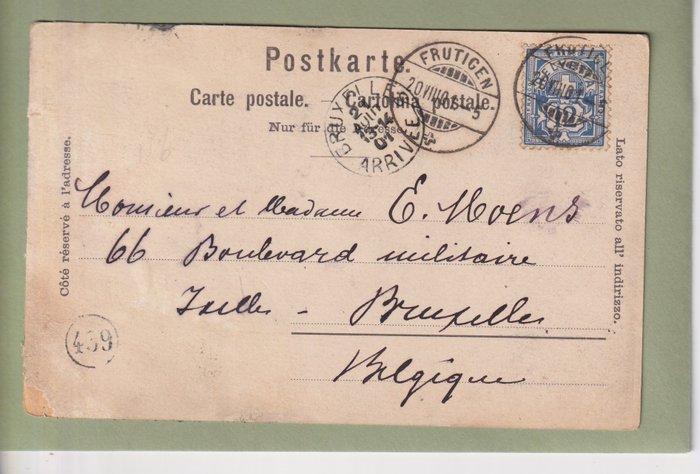 Postkarte.
Carte postale. Cartolina postale.
Nur für die Adresse.
FRUTIGEN
20 VIII 01
BRUXELLES
21 AOUT
13-14
01
ARRIVEE
FRUTIGEN
20 VIII 01
Côté réservé à l'adresse.
Lato riservato all' indirizzo.
Monsieur et Madame E. Moens
66 Boulevard militaire
Ixelles - Bruxelles
Belgique
459